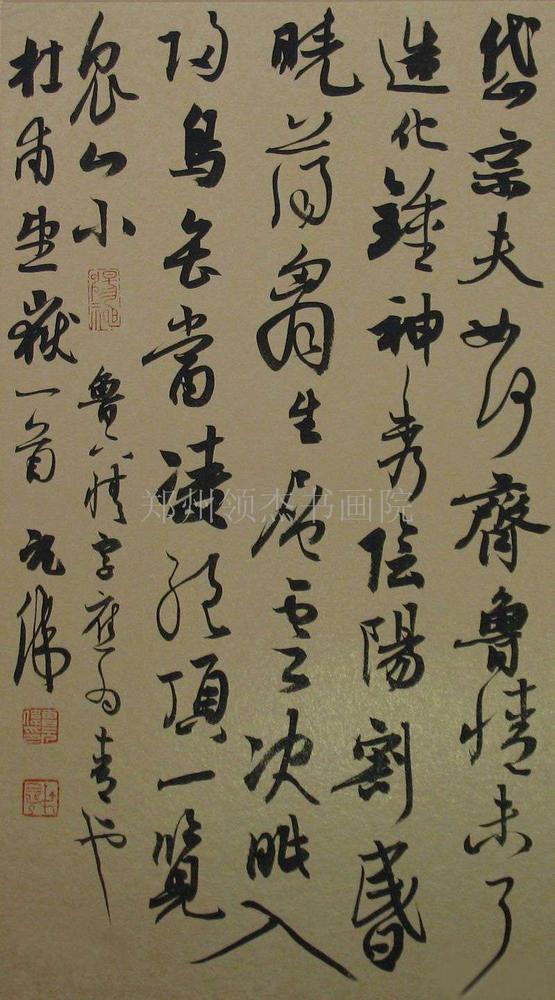 岱宗夫如何齊魯情未了
造化鍾神秀陰陽割昏
曉蕩胷生層雲决眥入
歸鳥會當凌絕頂一覽
衆山小
魯下情字應為青也
杜甫望嶽一首
郑州领杰书画院